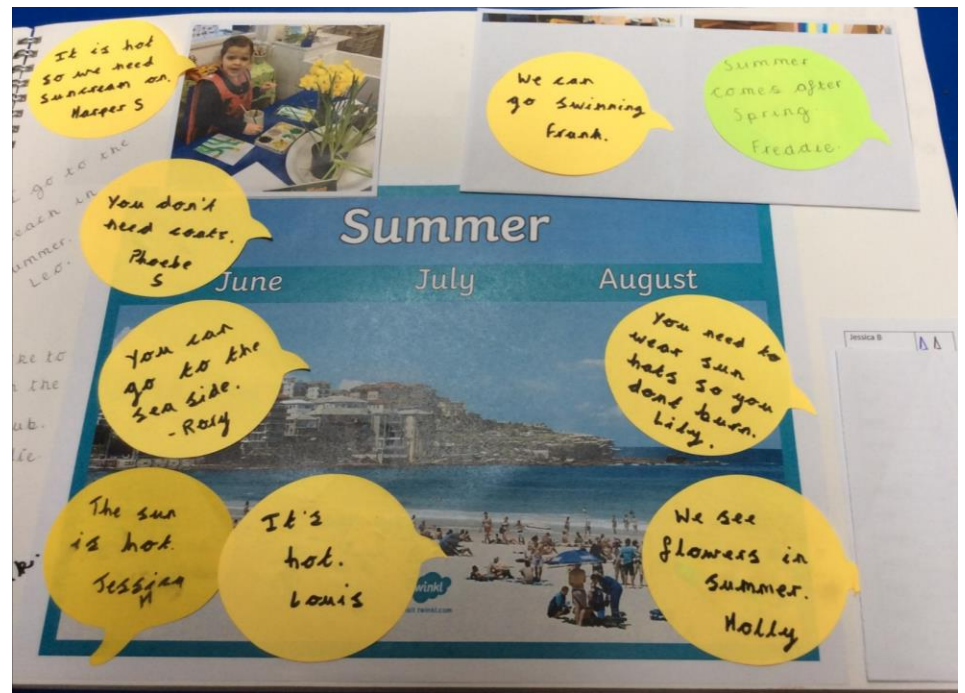 It is hot
so we need
suncream on.
Harper S
We can
go Swinning
Frank.
Summer
comes after
Spring.
Freddie.
go to the
in
ummer.
Leo.
You don't
need coats.
Phoebe
S
Summer
June
July
August
You can
go to the
sea side.
- Rory
You need to
wear sun
hats so you
dont burn.
Lily.
Jessica B
to
the
The sun
is hot.
Jessica
M
It's
hot.
Louis
We see
flowers in
Summer.
Holly
twinkl
twinkl.com